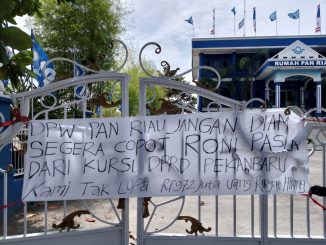 RUMAH PAN RIAU
DPW PAN RIAU JANGAN DIAM
SEGERA COPOT RONI PASLA
DARI KURSI DPRD PEKANBARU
Kami Tak Lupa RP972 Juta uang